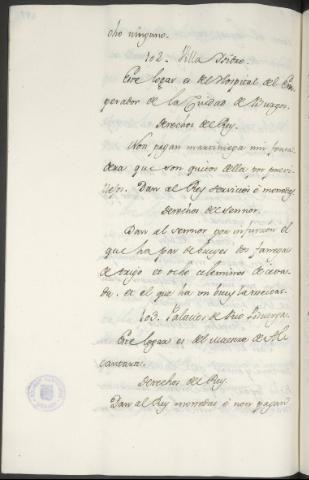 cho ninguno.
102. Villa
Este logar es del Hospital del Em-
perador de la Ciudad de Burgos.
Derechos del Rey.
Non pagan martiniega nin fonsa-
dera que son quitos della por previ-
llejo. Dan al Rey servicios è monedas
Derechos del Sennor.
Dan al sennor por infurcion el
que ha par de bueyes dos fanegas
de trigo et ocho celemines de ceva-
da. et el que ha un buey la meitat.
103. Palacios de Rio
Este logar es del
cantara.
Derechos del Rey.
Dan al Rey monedas è non pagan